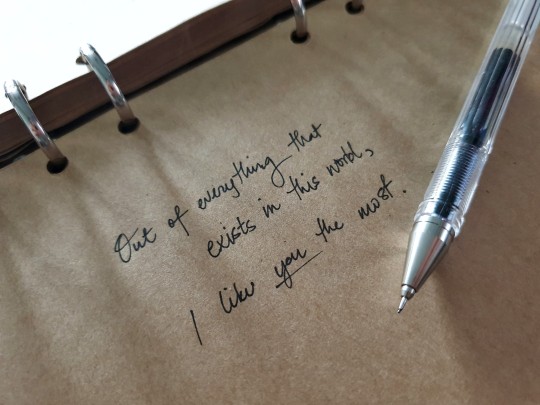 Out of everything that
exists in this world,
I like you the most.